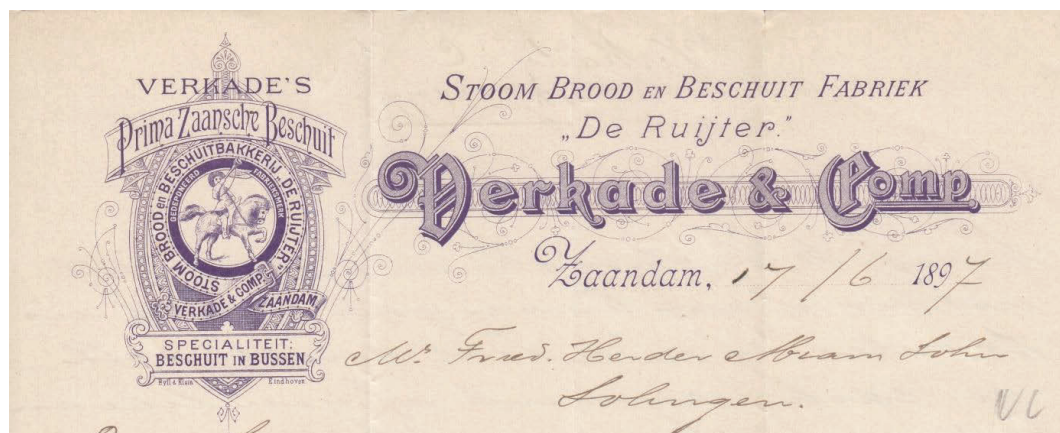 VERKADE'S
Prima Zaansche Beschuit
STOOM BROOD en BESCHUITBAKKERIJ „DE RUIJTER"
GEDEPONEERD FABRIEKSMERK
VERKADE & COMP.
ZAANDAM.
SPECIALITEIT:
BESCHUIT IN BUSSEN
Eindhoven
STOOM BROOD EN BESCHUIT FABRIEK
„De Ruijter."
Verkade & Comp.
Zaandam, 17/6 1897
Mr. Fried. Herder Abram Sohn
Solingen.